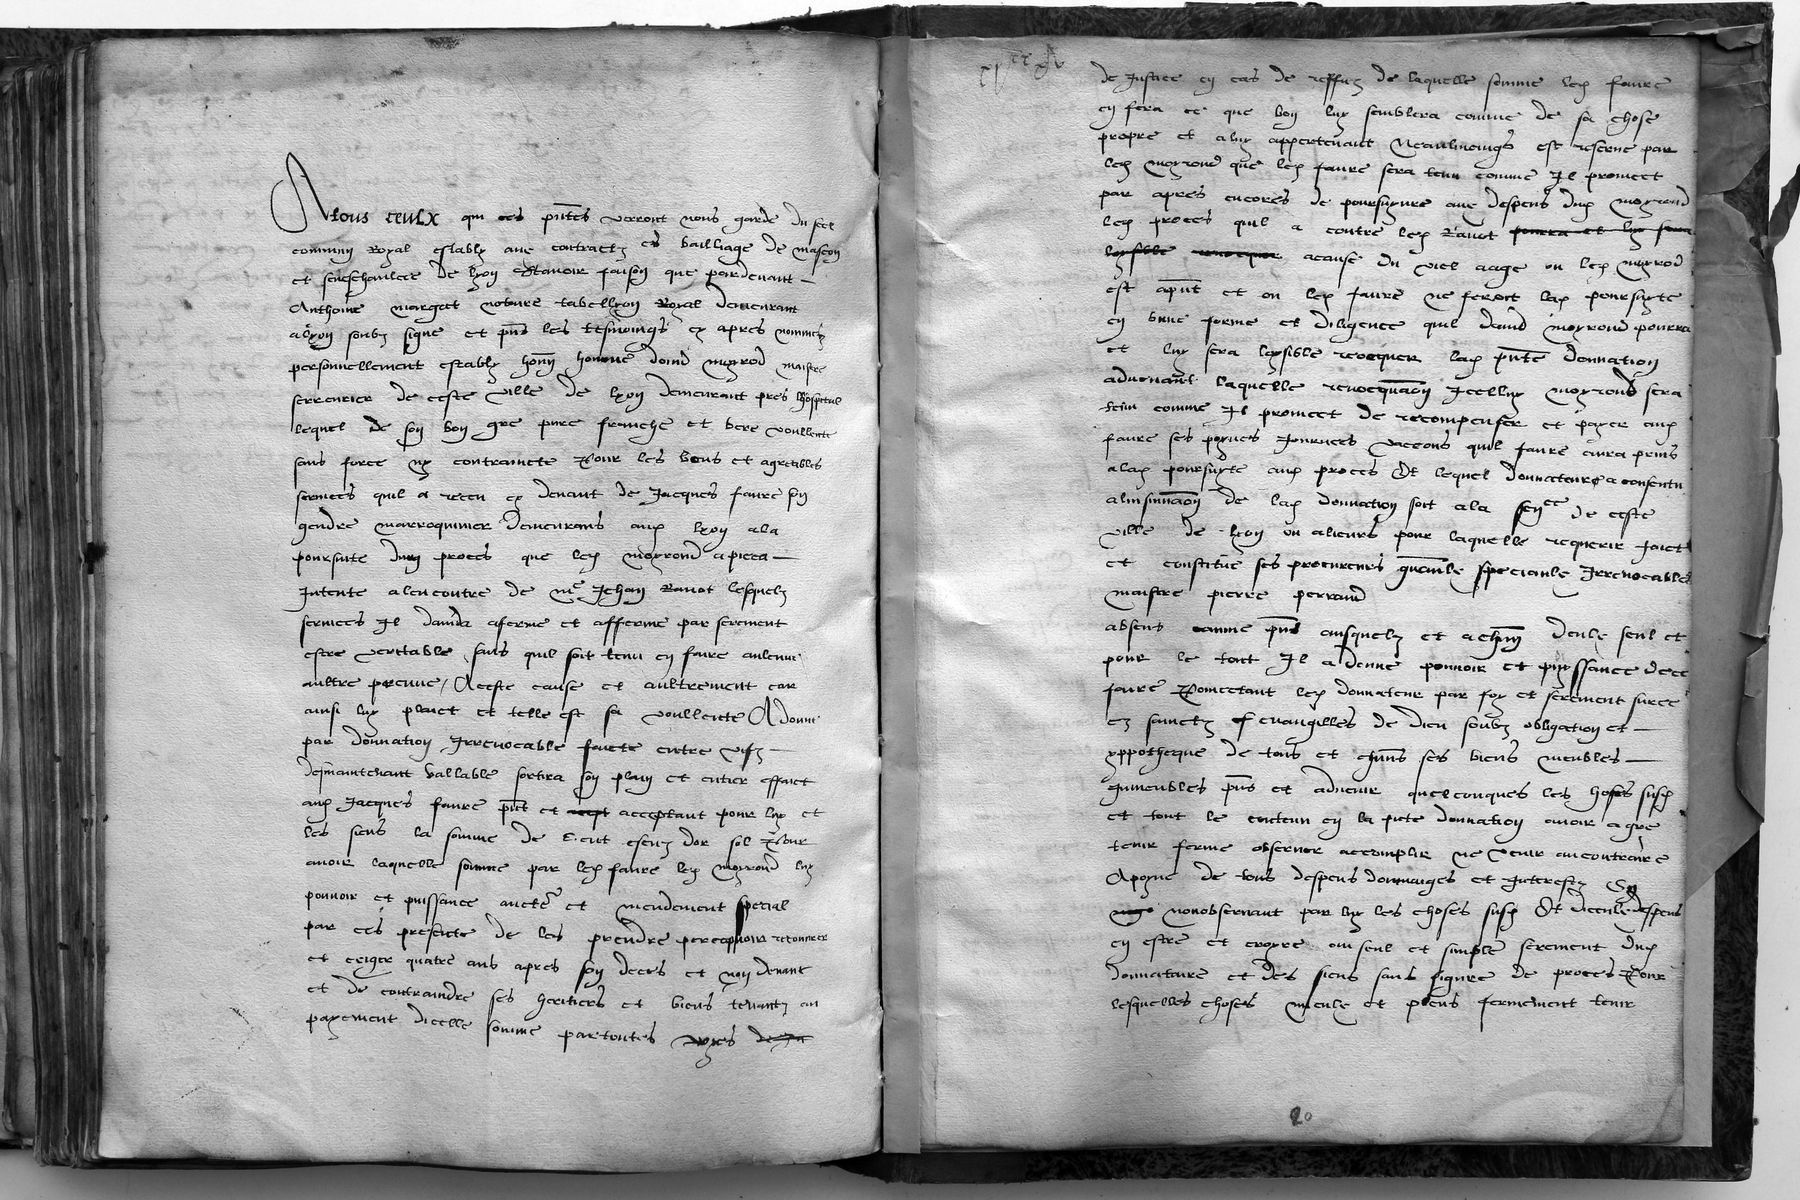 A tous ceulx qui ces pntes verront nous garde du seel
commun Royal estably aux contractz es bailliage de mascon
et seneschaulcee de lyon scavoir faison que pardevant
Anthoine margat notaire tabellyon Royal demeurant
a lyon soubz signe et pns les tesmoings cy apres nommez
personnellement estably honn homme doind moyrod maistre
serrurier de ceste ville de lyon demeurant pres lhospital
lequel de son bon gre pure franche et bere voullente
sans force ny contraincte Pour les bons et agreables
services quil a receu cy devant de Jacques favre son
gendre marroquinier demeurans aud lyon a la
poursuite dung proces que led moyroud a pieca
Intente alencontre de me Jehan Ravot lesquelz
services Il afferme et afferme par serement
estre veritable sans quil soit tenu en faire aulcune
aultre preuve / A ceste cause et aultrement car
ainsi luy plaict et telle est sa voullente A donne
par donnation Irrevocable faicte entre vifz
desmaintenant vallable sortira son plain et entier effaict
aud Jacques favre pnt et accept acceptant pour luy et
les siens la somme de cent escuz dor sol Pour
avoir laquelle somme par led favre led moyroud luy
pouvoir et puissance aucte et mendement special
par ces presente de les prendre percepvoir recouvrer
et exiger quatre ans apres son deces et non devant
et de contraindre ses heritiers et biens tenantz au
payement dicelle somme par toutes voyes de Ju
de Justice en cas de reffuz de laquelle somme led favre
en fera ce que bon luy semblera comme de sa chose
propre et a luy appertenant Neaulmoings est reserve par
led moyroud que led favre sera tenu comme Il promect
par apres encores de poursuyvre aux despens dud moyroud
led proces quil a contre led Ravot pourra et luy sera
loysible revocquer a cause du viel aage ou led moyrod
est apnt et ou led favre ne feroit lad poursuyte
en bnne forme et diligence quil doind moyroud pourra
et luy sera loysible revocquer lad pnte donnation
advenant laquelle revocquaon Icelluy moyroud sera
tenu comme Il promect de recompenser et payer aud
favre ses poynes Journees vaccons quil favre aura prins
a lad poursuyte aud proces Et lequel donnateur a consentu
a linsinuaon de lad donnation soit a la sencee de ceste
ville de lyon ou alieurs pour laquelle requerir faict
et constitue ses procureurs gnaulx speciaulx Irrevocables
maistre pierre perraud
absens comme pns ausquelz et a chun deulx seul et
pour le tout Il a donne pouvoir et puyssance de ce
faire Promectant led donnateur par foy et serement sur ce
es sainctz Fevangilles de dieu soubz obligation et
yppotheque de tous et chuns ses biens meubles
Immeubles pns et advenir quelconques les choses susd
et tout le contenu en la pnte donnation avoir a gre
tenir ferme observer accomplir ne venir au contraire
A poyne de tous despens dommaiges et Interestz
nonobservant par luy les choses susd Et diceulx despens
en estre et croyre ou seul et simple serement dud
donnataire et des siens sans figure de proces Pour
lesquelles choses mieulx et plus fermement tenir
20